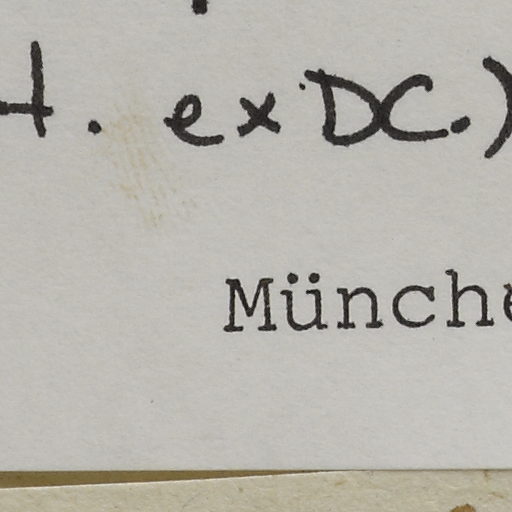 H. ex DC.)
Münche